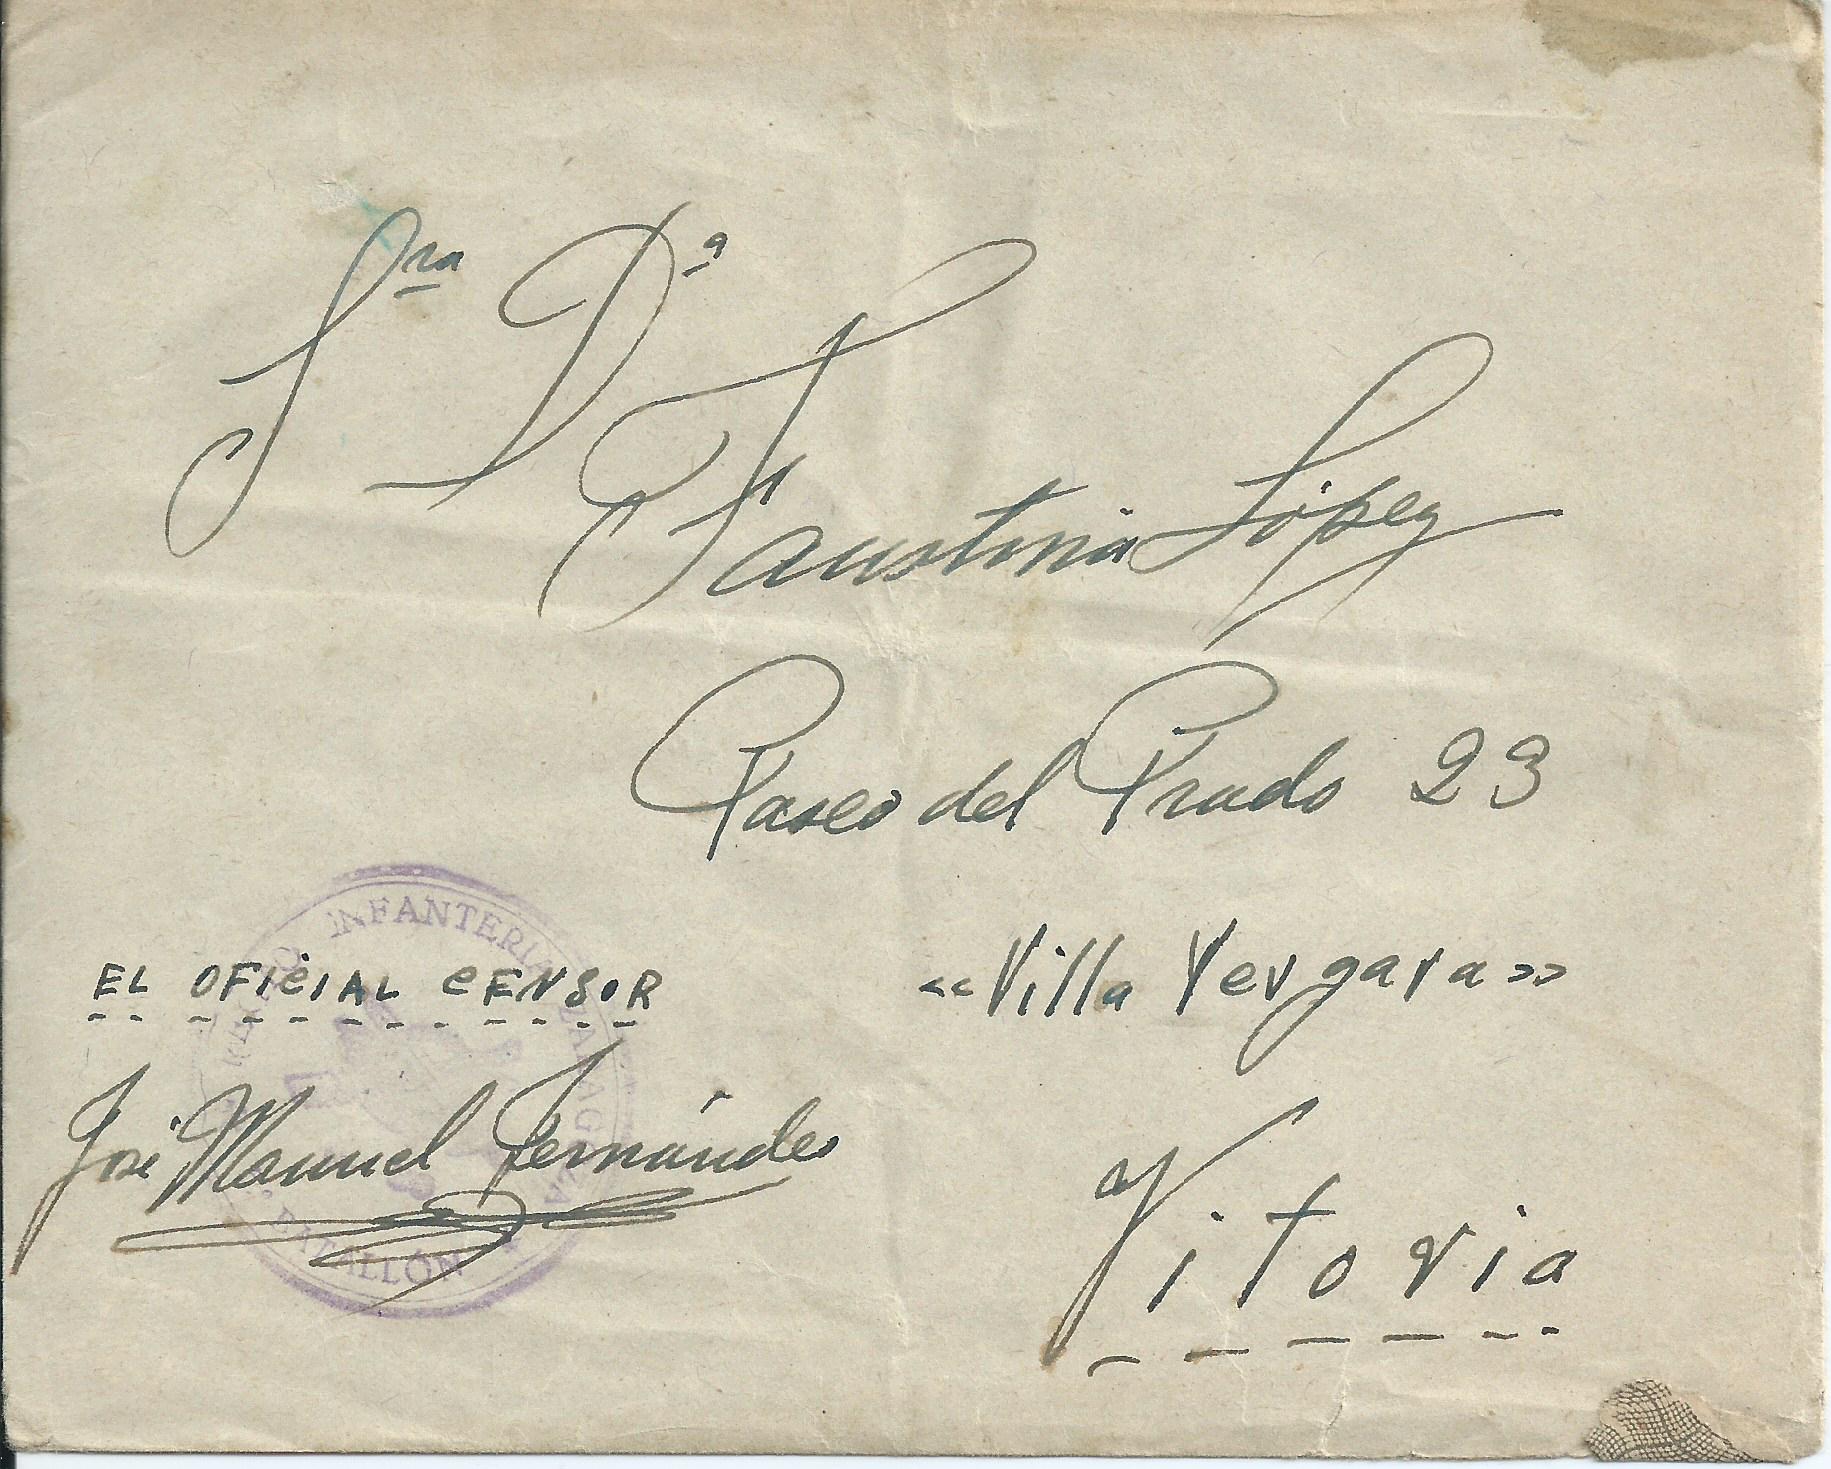 Sra Dª
Faustina López
Paseo del Prado 23
«Villa Vergara»
Vitoria
EL OFICIAL CENSOR
José Manuel Fernández
INFANTERIA ZARAGOZA
BATALLÓN